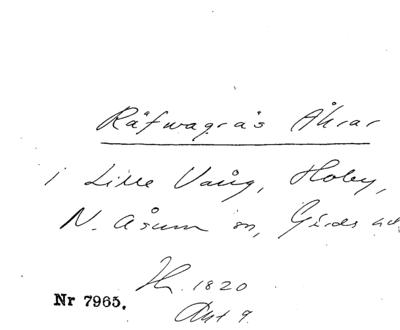 Räfwagrås Åkrar
i Lille Vång, Hoby,
N. Åsum sn, Gärds hd.
1820
Akt 9.
Nr 7965.